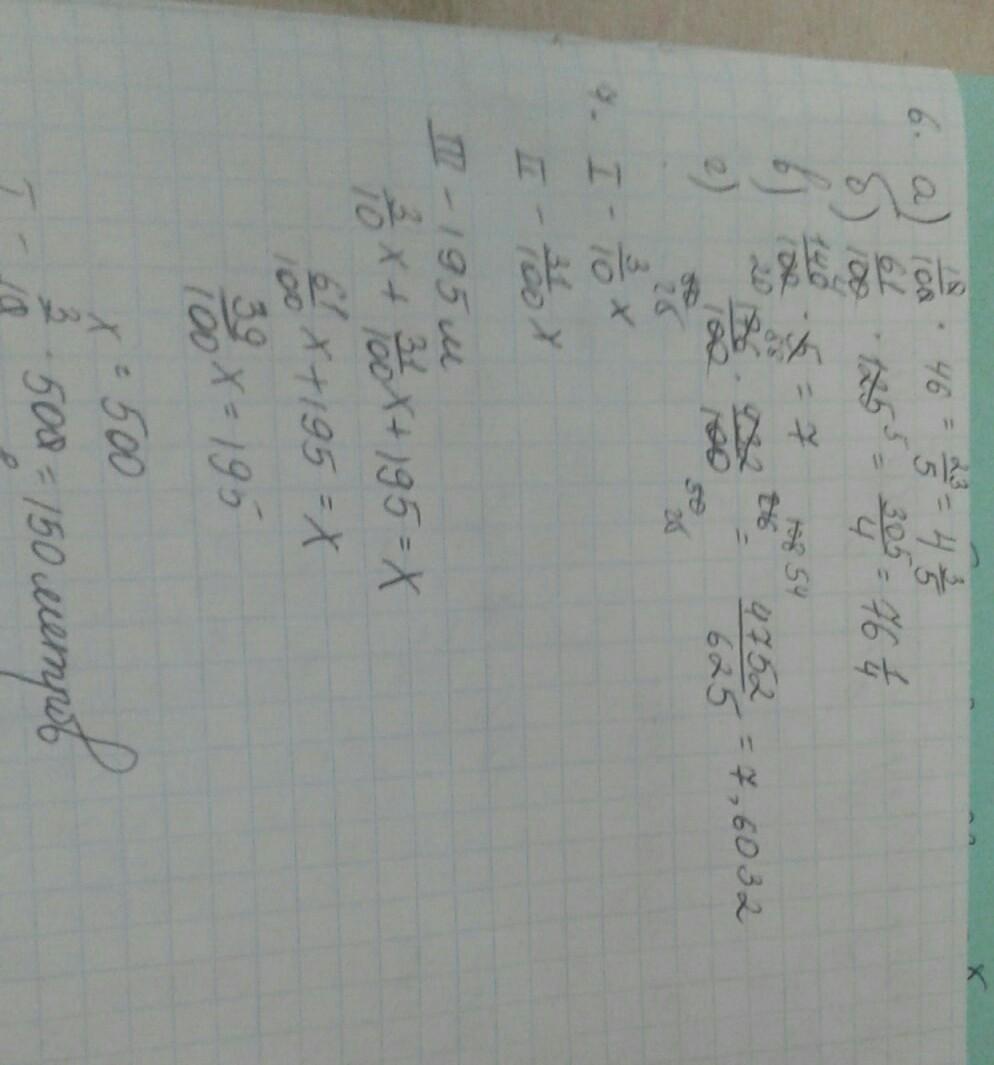 6. а) 10/100 · 46 = 23/5 = 4 3/5
б) 61/100 · 125 5 = 305/4 = 76 1/4
в) 140/100 · 5 = 7
г) 176/100 · 432/100 = 4752/625 = 7,6032
7. I - 3/10 x
II - 31/100 x
III - 195 м
3/10 x + 31/100 x + 195 = x
61/100 x + 195 = x
39/100 x = 195
x = 500
I - 3/10 · 500 = 150 метров